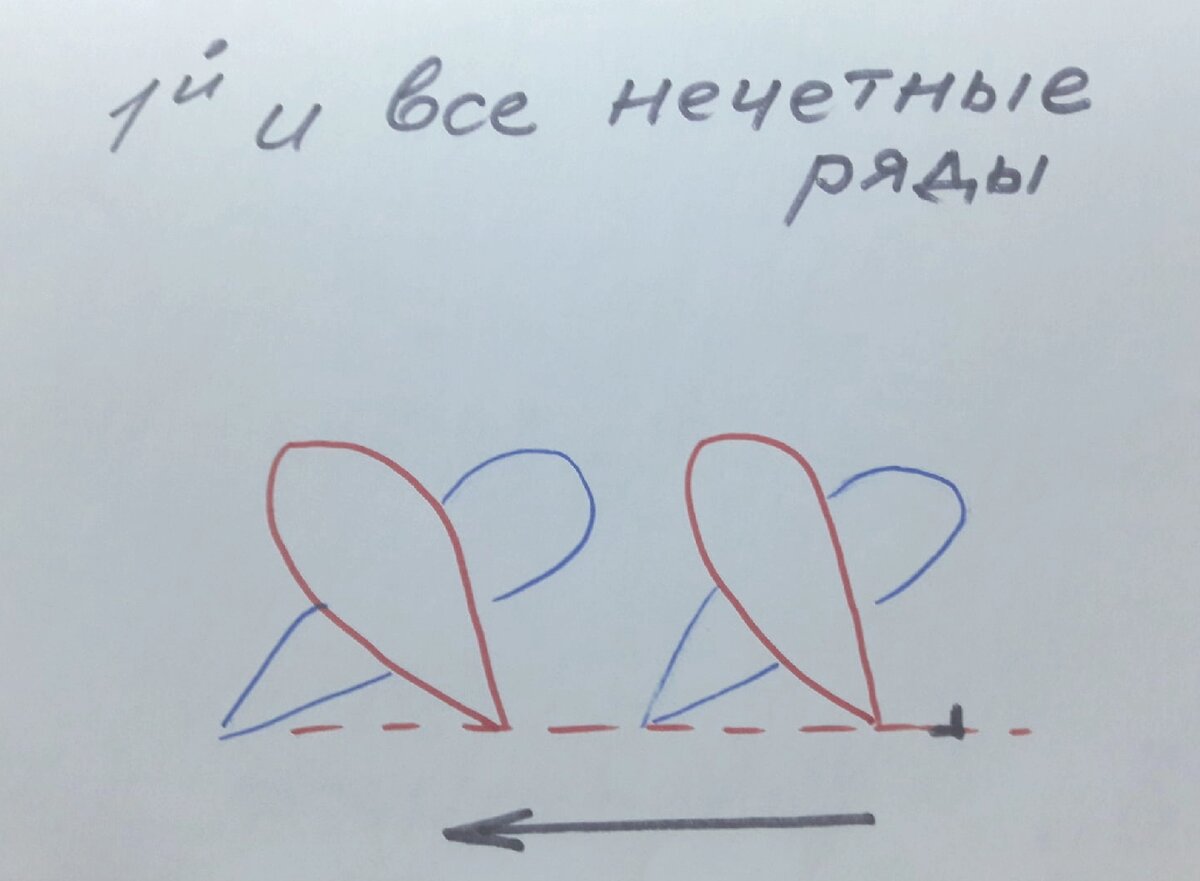 1й и все нечетные
ряды